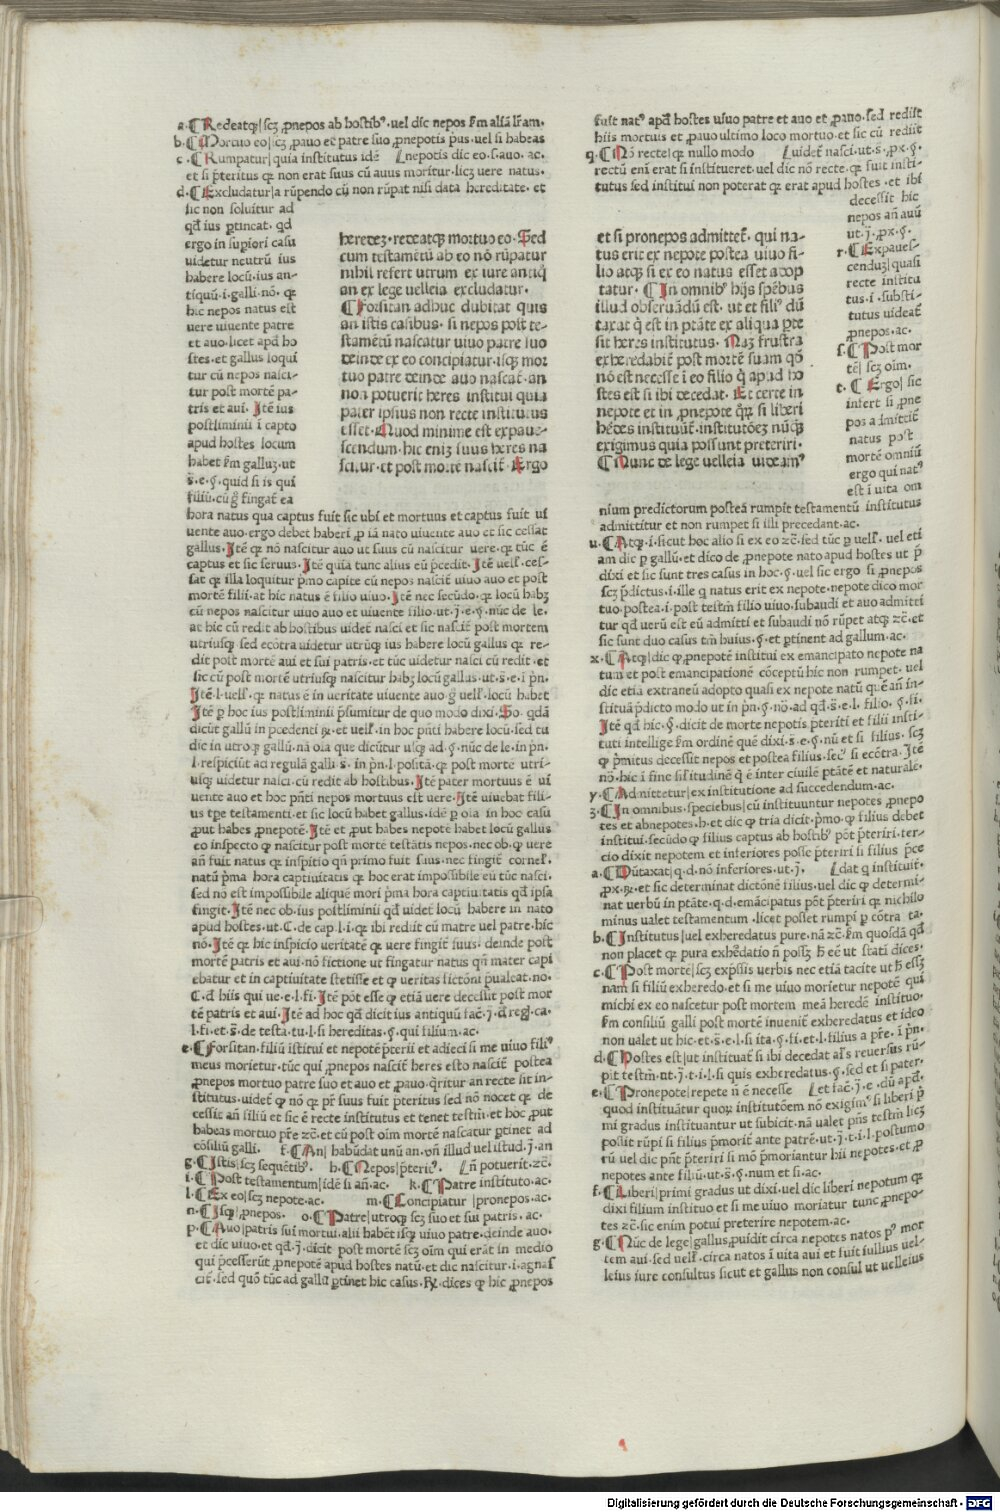 a.¶Redeatq̄|scȝ ꝓnepos ab hostibꝰ.vel dic nepos ẜm aliā lr̄am.
b.¶Mortuo eo|scȝ ꝓauo ec̄ patre suo ꝓnepotis pͥus.vel si habeas
c.¶Rumpatur|quia institutus idē nepotis dic eo.s.auo.ac.
et si pͣteritus qꝛ non erat suus cū auus moritur.licȝ vere natus.
d.¶Excludatur|a rūpendo cū non rūpat nisi data hereditate.et
sic non soluitur ad
qd̄ ius ꝑtineat.qd
ergo in supiori casu
videtur neutrū ius
habere locū.ius an-
tiquū.i.galli.nō.qꝛ
hic nepos natus est
vere viuente patre
et auo.licet apd̄ ho
stes.et gallus loqui
tur cū nepos nasci-
tur post mortē pa-
tris et aui.Itē ius
postliminii ī capto
apud hostes locum
habet ẜm gallum.ut
s̄.e.§.quid si is qui
filiū.cū gͦ fingat̄ ea
heredeȝ.redeatqȝ mortuo eo.Sed
cum testamētū ab eo nō rūpatur
nihil refert utrum ex iure antiq̄
an ex lege velleia excludatur.
¶Forsitan adhuc dubitat quis
an istis casibus.si nepos post te-
stamētū nascatur viuo patre suo
deinde ex eo concipiatur.isqȝ mor
tuo patre deinde auo nascat̄.an
non potuerit heres institui quia
pater ipsius non recte institutus
esset.Quod minime est expaue-
scendum.hic eniȝ suus heres na
scitur.et post mortē nascit̄.Ergo
hora natus qua captus fuit sic ubi et mortuus et captus fuit vi
uente auo.ergo debet haberi ꝓ iā nato viuente auo et sic cessat
gallus.Itē qꝛ nō nascitur auo ut suus cū nascitur vere.qꝛ tūc ē
captus et sic seruus.Itē quia tunc alius eū p̄cedit.Itē vell'.ces-
sat qꝛ illa loquitur pͥmo capite cū nepos nascit̄ viuo auo et post
mortē filii.at hic natus ē filio viuo.Itē nec secūdo.qꝛ locū habȝ
cū nepos nascitur viuo auo et viuente filio.ut.ȷ̄.e.§.nūc de le.
at hic cū redit ab hostibus videt̄ nasci et sic nascit̄ post mortem
utriusqȝ.sed ecōtra videtur utrūqȝ ius habere locū gallus qꝛ re-
dit post mortē aui et sui patris.et tūc videtur nasci cū redit.et
sic cū post mortē utriusqȝ nascitur habȝ locū gallus.ut.s̄.e.i pͥn.
Itē.l.vell'.qꝛ natus ē in veritate viuente auo.gͦ vell'.locū habet
Itē ꝑ hoc ius postliminii p̄sumitur de quo modo dixi.So.qdā
dicūt gallū in p̄cedenti R̵.et vell'.in hoc pn̄ti habere locū.sed tu
dic in utroqȝ gallū.nā oīa que dicūtur usqȝ ad.§.nūc de le.in pͥn.
l.respiciūt ad regulā galli.s̄.in pͥn.l.positā.qꝛ post mortē utri-
usqȝ videtur nasci.cū redit ab hostibus.Itē pater mortuus ē vi
uente auo et hoc pn̄ti nepos mortuus est vere.Itē viuebat fili-
us tp̄e testamenti.et sic locū habet gallus.idē ꝑ oīa in hoc casu
ꝓut habes ꝓnepotē.Itē et ꝓut habes nepotē habet locū gallus
eo inspecto qꝛ nascitur post mortē testātis nepos.nec ob.qꝛ vere
an̄ fuit natus qꝛ inspitio qn̄ primo fuit suus.nec fingit̄ cornel'.
natū pͥma hora captiuitatis qꝛ hoc erat impossibile eū tūc nasci.
sed no est impossibile aliquē mori pͥma hora captiuitatis qd̄ ipsa
fingit.Itē nec ob.ius postliminii qd̄ videt̄ locū habere in nato
apud hostes.ut.C.de cap.l.i.qꝛ ibi rediit cū matre vel patre.hic
nō.Itē qꝛ hic inspicio veritatē qꝛ vere fingit̄ suus.deinde post
mortē patris et aui.nō fictione ut fingatur natus qn̄ mater capi
ebatur et in captiuitate stetisse et qꝛ veritas fictōni p̄ualeat.no.
C.d̄ hiis qui ve.e.l.fi.Itē pōt esse qꝛ etiā vere decessit post mor
tē patris et aui.Itē ad hoc qd̄ dicit ius antiquū fac̄.ȷ̄.d̄ reg̣l'.ca.
l.fi.et.s̄.de testa.tu.l.si hereditas.§.qui filium.ac.
e.¶Forsitan.filiū īstitui et nepotē p̄terii et adieci si me viuo filiꝰ
meus morietur.tūc qui ꝓnepos nascit̄ heres esto nascit̄ postea
ꝓnepos mortuo patre suo et auo et ꝓauo.qͥritur an recte sit in-
stitutus.videt̄ qꝛ nō qꝛ pr̄ suus fuit pteritus sed nō nocet qꝛ de
cessit an̄ filiū et sic ē recte institutus et tenet testm̄.et hoc ꝓut
habeas mortuo pr̄e zc̄.et cū post oīm mortē nascatur ꝑtinet ad
cōsiliū galli. f.¶An|habūdat unū an.vn̄ illud vel istud.ȷ̄.an
g.¶Istis|scȝ sequētibꝰ. h.¶Nepos|pͣteritꝰ. n̄ potuerit.zc̄.
i.¶Post testamentum|idē si an̄.ac. k.¶Patre instituto.ac.
l.¶Ex eo|scȝ nepote.ac. m.¶Concipiatur|pronepos.ac.
n.¶Isqȝ|ꝓnepos. o.¶Patre|utroqȝ scȝ suo et sui patris.ac.
p.¶Auo|patris sui mortui.alii habēt isqȝ viuo patre.deinde auo.
et dic viuo.et qd̄.ȷ̄.dicit post mortē scȝ oīm qui erāt in medio
qui p̄cesserūt ꝓnepotē apud hostes natū.et dic nascitur.i.agnas
cit̄.sed quō tūc ad gallū ꝑtinet hic casus.R̵.dices qꝛ hic ꝓnepos
fuit natꝰ apd̄ hostes viuo patre et auo et ꝓauo.sed rediit
hiis mortuis et ꝓauo ultimo loco mortuo.et sic cū rediit
q.¶Nō recte|qꝛ nullo modo videt̄ nasci.ut.s̄.ꝓx.§.
rectū eni erat si institueret.vel dic nō recte.qꝛ fuit insti-
tutus sed institui non poterat qꝛ erat apud hostes.et ibi
decessit hic
nepos an̄ auū
ut.ȷ̄.ꝓx.§.
r.¶Expaues-
cenduȝ|quasi
recte institu
tus.i.substi-
tutus videat̄
ꝓnepos.ac.
s.¶Post mor
tē|scȝ oīm.
t.¶Ergo|sic
infert si ꝓne
pos admittit̄
natus post
mortē omniū
ergo qui natꝰ
est ī vita om
et si pronepos admittet̄.qui na-
tus erit ex nepote postea viuo fi-
lio atqȝ si ex eo natus esset adop
tatur.¶In omnibꝰ hijs spēbus
illud obseruādū est.ut et filiꝰ dū
taxat q̇ est in ptāte ex aliqua ꝑte
sit heres institutus.Naȝ frustra
exheredabit̄ post mortē suam qd̄
nō est necesse ī eo filio q̇ apud ho
stes est si ibi decedat.Et certe in
nepote et in ꝓnepote qͦȝ si liberi
hēdes instituūt̄.institutōeȝ nūqȝ
exigimus quia possunt preteriri.
¶Nunc de lege velleia videamꝰ
nium predictorum posteā rumpit testamentū institutus
admittitur et non rumpet si illi precedant.ac.
u.¶Atqȝ.i.sicut hoc alio si ex eo zc̄.sed tūc ꝑ vell'.vel eti
am dic ꝑ gallū.et dico de ꝓnepote nato apud hostes ut p̄
dixi et sic sunt tres casus in hoc.§.vel sic ergo si ꝓnepos
scȝ p̄dictus.i.ille q̇ natus erit ex nepote.nepote dico mor
tuo.postea.i.post testm̄ filio viuo.subaudi et auo admitti
tur qd̄ verū est eū admitti et subaudi nō rūpet atqȝ zc̄.et
sic sunt duo casus tm̄ huius.§.et ptinent ad gallum.ac.
x.¶Atqȝ|dic qꝛ ꝓnepotē institui ex emancipato nepote na
tum et post emancipationē cōceptū hic non rumpet.vel
dic etiā extraneū adopto quasi ex nepote natū quē an̄ in-
stituā pͥdicto modo ut in pͥn.§.nō.ad qd̄.s̄.e.l.filio.§.fi.
Itē qd̄ hic.§.dicit de morte nepotis p̄teriti et filii insti-
tuti intellige ẜm ordinē quē dixi.s̄.e.§.nū et si filius.scȝ
qꝛ pͥmitus decessit nepos et postea filius.secꝰ si ecōtra.Itē
nō.hic ī fine silitudinē q̄ ē inter ciuilē ptātē et naturalē.
y.¶Admittetur|ex institutione ad succedendum.ac.
z.¶In omnibus.speciebus|cū instituuntur nepotes ꝓnepo
tes et abnepotes.h.et dic qꝛ tria dicit.pͥmo.qꝛ filius debet
institui.secūdo qꝛ filius captus ab hostibꝰ pōt p̄teriri.ter-
cio dixit nepotem et inferiores posse p̄teriri si filius p̄ce
a.¶Dūtaxat|q.d.nō inferiores.ut.ȷ̄. dat q̇ instituit̄.
ꝓx.R̵.et sic determinat dictōnē filius.vel dic qꝛ determi-
nat verbū in ptāte.q.d.emācipatus pōt p̄teriri qꝛ nichilo
minus valet testamentum.licet posset rumpi ꝑ cōtra ta.
b.¶Institutus|vel exheredatus pure.nā zc̄.ẜm quosdā qd̄
non placet qꝛ pura exhēdatio n̄ possȝ h̄ eē ut stati dices.
c.¶Post mortē|scȝ exp̄ssis verbis nec etiā tacite ut h̄ essȝ
nam si filiū exheredo.et si me viuo morietur nepotē qui
michi ex eo nascetur post mortem meā heredē instituo.
ẜm consiliū galli post mortē inuenit̄ exheredatus et ideo
non valet ut hic.et.s̄.e.l.si ita.§.fi.et.l.filius a pr̄e.i pͥn.
d.¶Postes est|ut instituat̄ si ibi decedat al's reuersus rū-
pit testm̄.ut.ȷ̄.t.i.l.si quis exheredatus.§.sed et si pater.
e.¶Pronepote|repete n̄ ē necesse et fac̄.ȷ̄.e.dū apd̄.
quod instituātur quoȝ institutōem nō exigimꝰ si liberi pͥ
mi gradus instituantur ut subicit.nā valet pn̄s testm̄ licȝ
possit rūpi si filius pͥmorit̄ ante patrē.ut.ȷ̄.t.i.l.postumo
rū vel dic pn̄t p̄teriri si nō pͥmoriantur hii nepotes.et ꝓ
nepotes ante filiū.ut.s̄.§.num et si.ac.
f.¶Liberi|primi gradus ut dixi.vel dic liberi nepotum qꝛ
dixi filium instituo et si me viuo moriatur tunc ꝓnepo-
tes zc̄.sic enim potui preterire nepotem.ac.
g.¶Nūc de lege|gallus ꝓuidit circa nepotes natos pꝰ mor
tem aui.sed vell'.circa natos ī vita aui et fuit iullius vel-
leius iure consultus sicut et gallus non consul ut velleius
Digitalisierung gefördert durch die Deutsche Forschungsgemeinschaft - DFG